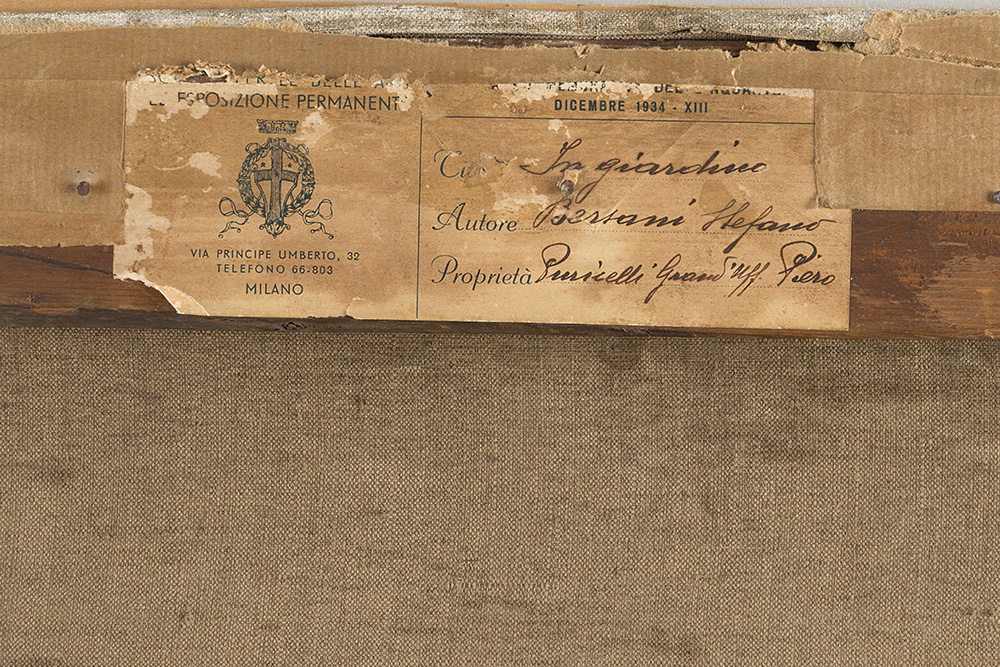 E ESPOSIZIONE PERMANENT
VIA PRINCIPE UMBERTO, 32
TELEFONO 66-803
MILANO
DICEMBRE 1934 - XIII
In giardino
Autore Bersani Stefano
Proprietà Puricelli Grand'Uff Piero